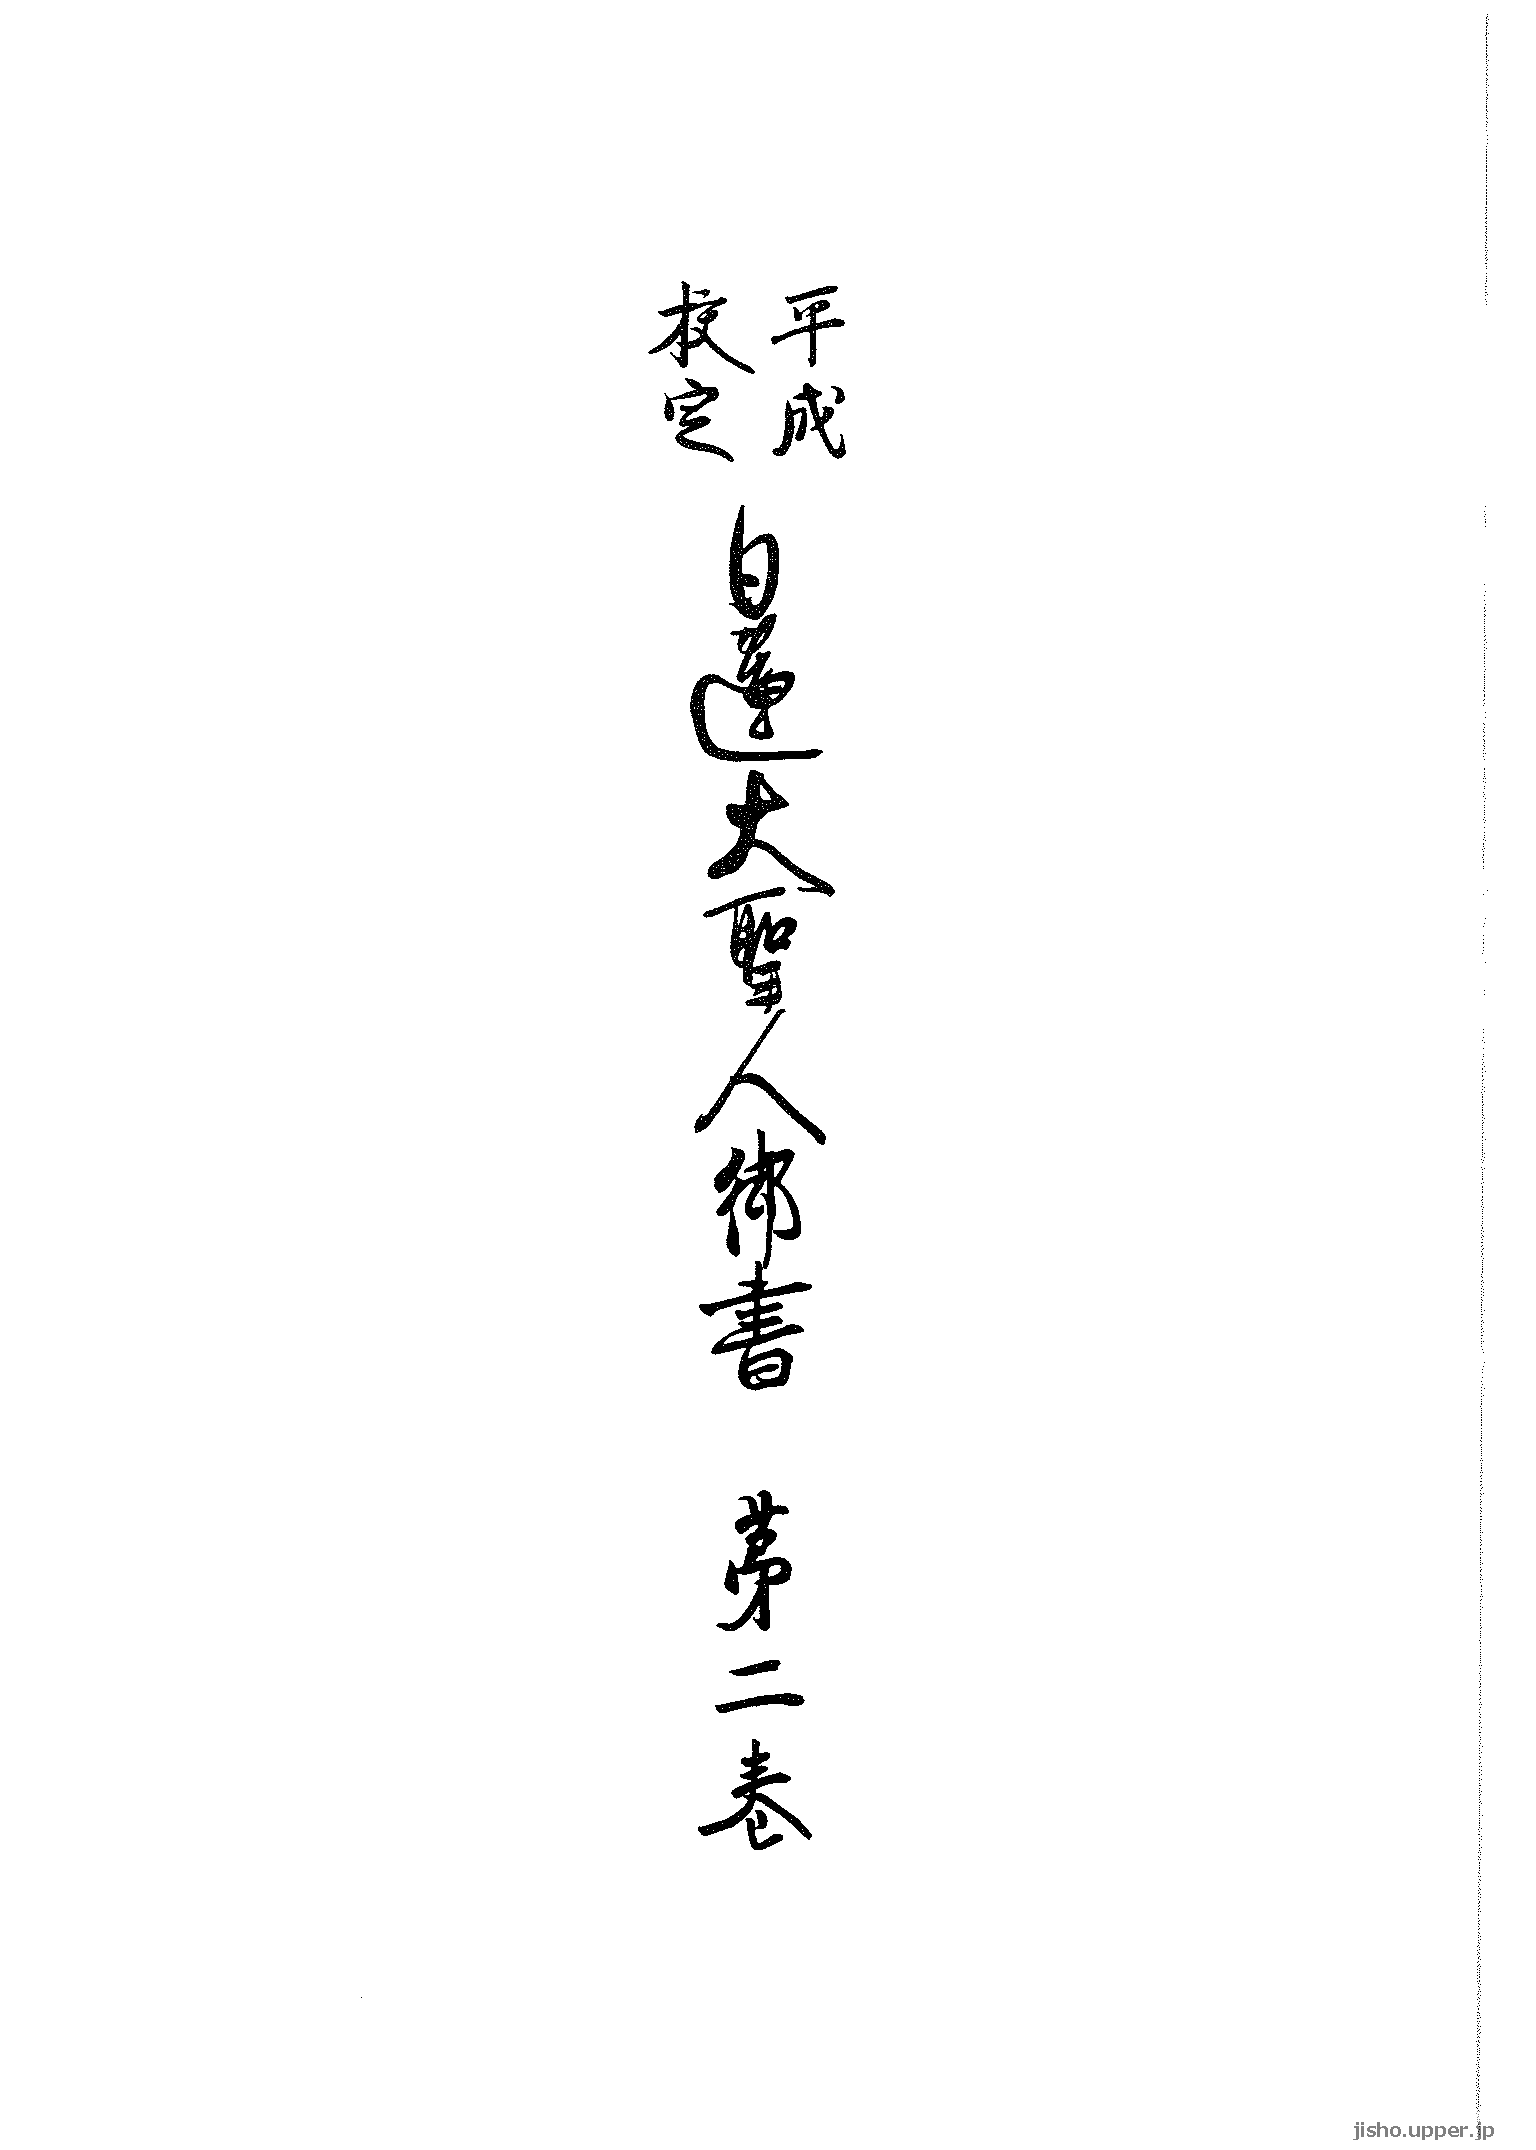 平成
校定
日蓮大聖人御書　第二巻
jisho.upper.jp